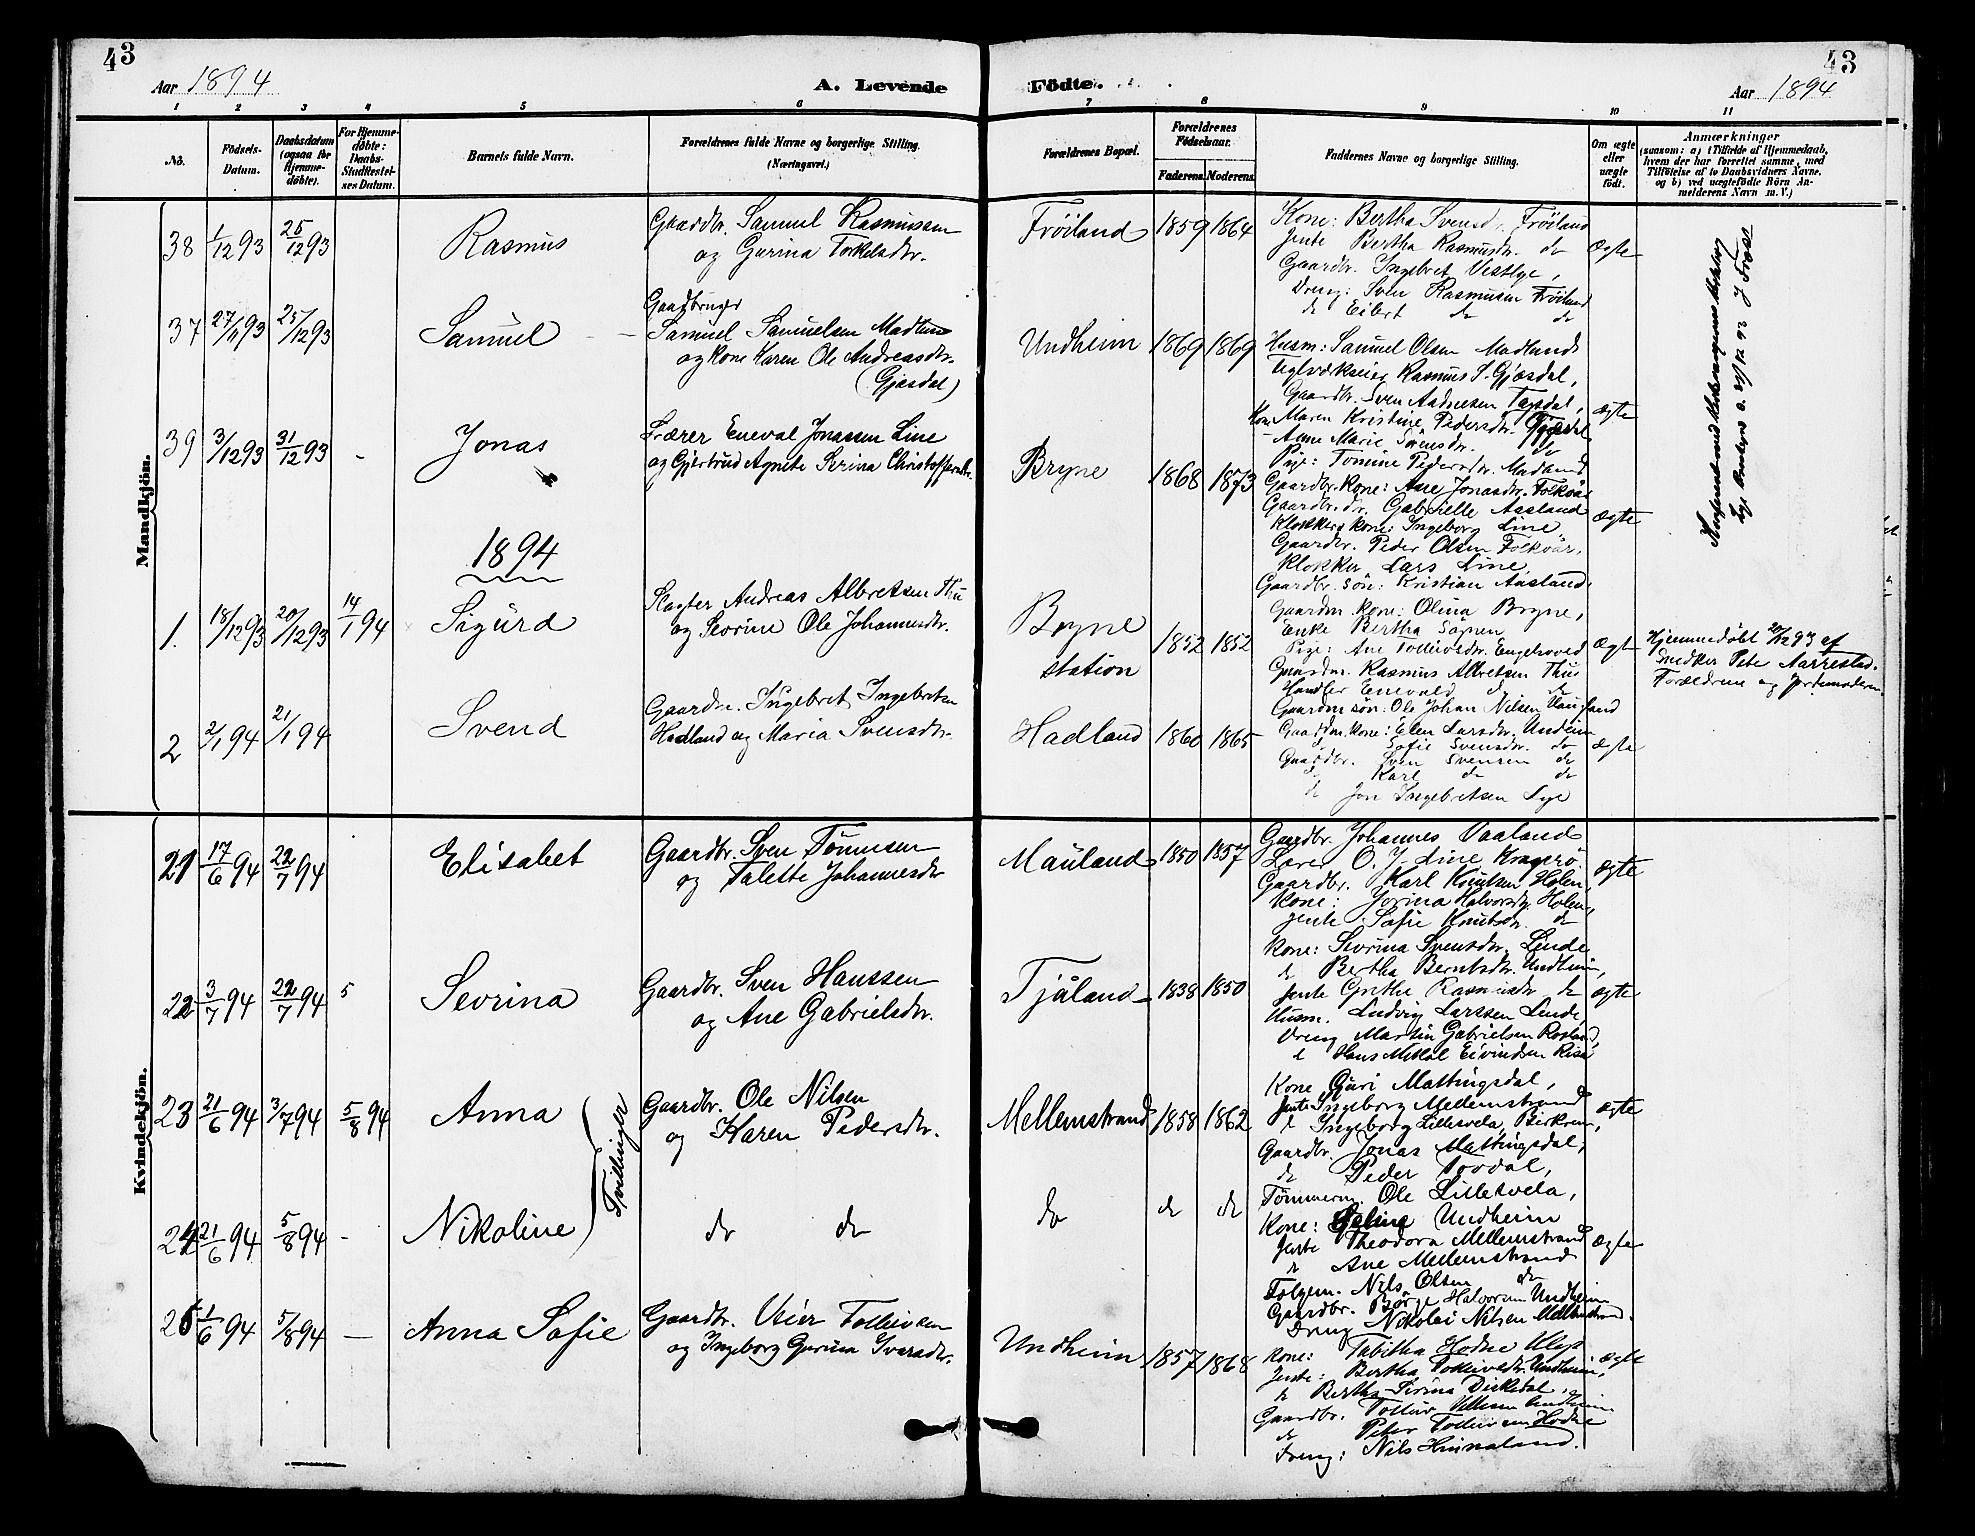 43
43
Aar 1894
A. Levende
Födte.
Aar 1894
1 2 3 4 5 6 7 8 9 10 11
No.
Födsels-Datum.
Daabsdatum (ogsaa for Hjemme-döbte).
For Hjemme-döbte: Daabs-Stadfæstelses Datum.
Barnets fulde Navn.
Forældrenes fulde Navne og borgerlige Stilling. (Næringsvei.)
Forældrenes Bopæl.
Forældrenes Födselsaar.
Faderens. Moderens.
Faddernes Navne og borgerlige Stilling.
Om ægte eller uægte födt.
Anmærkninger
(saasom: a) i Tilfælde af Hjemmedaab, hvem der har forrettet samme, med Tilföielse af to Daabsvidners Navne, og b) ved uægtefödte Börn Anmelderens Navn m. V.)
Mandkjön.
38 1/12 93 25/12 93 Rasmus
Gaardbr. Samuel Rasmussen
og Gurina Torkelsdtr.
Fröiland 1859 1864
Kone: Bertha Svensd., Fröiland
Jente Bertha Rasmusdr. do
Gaardbr. Ingebret Vestlye,
Dreng: Sven Rasmusen Fröiland
do Eibert do do
ægte
37 27/11 93 25/12 93 Samuel
Gaardbruger
Samuel Samuelsen Madland
og kone Karen Ole Andreasdtr.
(Gjesdal)
Undheim 1869 1869
Husm: Samuel Olsen Madland
Teglværkseier Rasmus S. Gjæsdal,
Gaardbr. Sven Aadnesen Tægsdal,
Kone Maren Kristine Pedersdr. Gjæsdal
- Anne Marie Sörensdr. do
Pige: Tomine Pedersdtr. Madland
ægte
39 3/12 93 31/12 93 - Jonas
Lærer Eneval Jonassen Line
og Gjertrud Agnete Serina Christoffersdtr.
Bryne 1868 1873
Gaardbr. kone: Ane Jonasdr. Folkvår
Gaardbr. dr. Gabrielle Aasland
Klokkers kone: Ingeborg Line
Gaardbr. Peder Olsen Folkvår,
Klokker Lars Line,
Gaardbr. sön: Kristian Aasland
ægte
1894
1. 18/12 93 20/12 93 14/1 94 Sigurd
Slagter Andreas Albretsen Thu
og Sevrine Ole Johannesdtr.
Bryne station 1852 1852
Gaardm. kone: Olina Bryne,
Enke Bertha
Pige: Ane Tollevsdr. Engelsvold
Gaardm. Rasmus Albretsen Thu
Handler Enevald do do
Gaardm sön: Ole Johan Nilsen Haugland
ægte
Hjemmedöbt 20/12 93 af
Snedker Pete Aarrestad.
Forældrene og Jordemoderen
2 2/1 94 21/1 94 Svend
Gaardbr. Ingebret Ingebretsen
Hadland og Maria Svensdtr.
Hadland 1860 1865
Gaardm. kone: Elen Larsdtr. Undheim
do Sofie Svensdtr. do
Gaardbr. Sven Svensen do
do Karl do do
do Jon Ingebretsen Lye
ægte
Kvindekjön.
21 17/6 94 22/7 94 Elisabet
Gaardbr. Sven Tönnesen
og Talette Johannesdtr
Mauland 1850 1857
Gaardbr. Johannes Vaaland
Lærer O. J. Line Kragerö.
Gaardbr. Karl Knutsen Holen,
Kone: Jorina Halvorsdtr. Holen,
Jente Sofie Knutsdr. do
ægte
22 3/7 94 22/7 94 5 Sevrina
Gaardbr. Sven Hanssen
og Ane Gabrielsdtr.
Tjåland 1838 1850
Kone: Sevrina Svensdtr. Linde
do Bertha Berntsdtr. Undheim,
Jente Grethe Rasmusdtr do
Husm. Ludvig Larssen Linde
Dreng Martin Gabrielsen Rosland,
do Hans Mikal Eivindsen Risa
ægte
23 21/6 94 3/7 94 5/8 94 Anna
Tvillinger
Gaardbr. Ole Nilsen
og Karen Pedersdtr.
Mellemstrand 1858 1862
Kone Guri Mattingsdal,
Jente Ingeborg Mellemstrand
do Ingeborg Lillesvela, Birkrem,
Gaardbr. Jonas Mattingsdal,
do Peder Tovdal,
Tömmerm. Ole Lillesvela,
ægte
24 21/6 94 5/8 94 - Nikoline
do do
do do do
Kone: Undheim
Jente Theodora Mellemstrand
do Ane Mellemstrand
Folgem. Nils Olsen do
Gaardbr. Börge Halvorsen Undheim
Dreng Nikolai Nilsen Mellemstrand.
ægte
25 1/6 94 5/8 94 — Anna Sofie
Gaardbr. Veier Tollevsen
og Ingeborg Gurina Ivarsdtr.
Undheim 1857 1868
Kone: Tabitha Hodne Klep
Jente: Bertha Tollevsdtr. Undheim,
do Bertha Serina Dirkdal,
Gaardbr. Tollev Undheim
do Peter Tollevsen Hodne
Dreng: Nils Hinnaland.
ægte